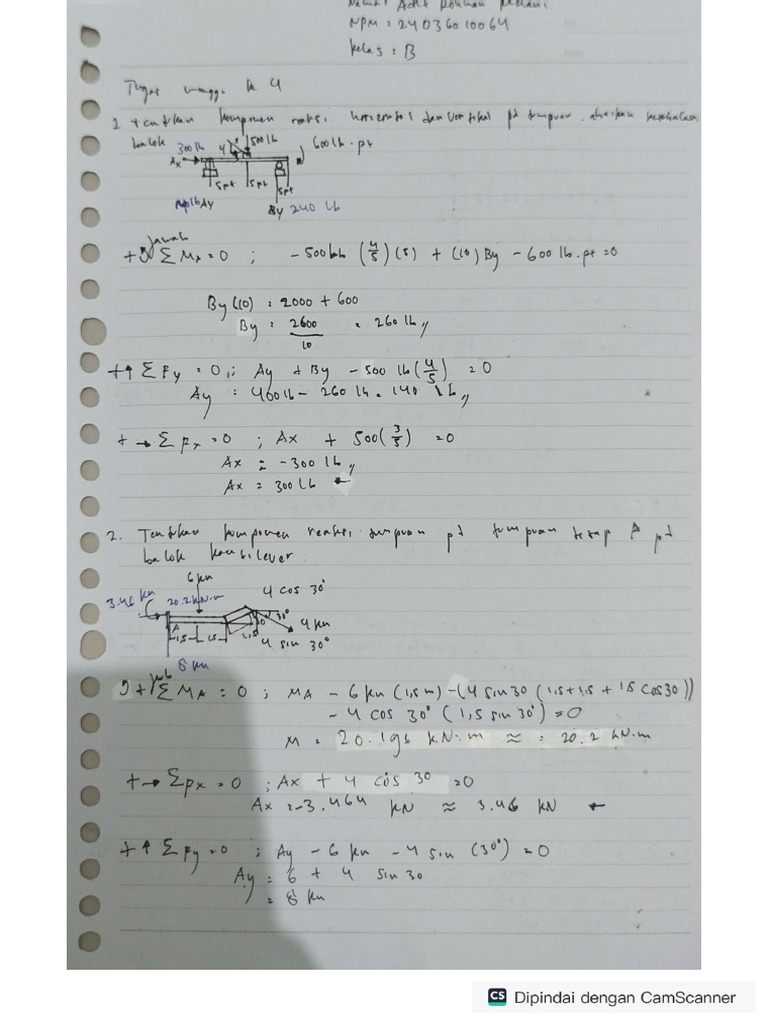 NPM : 24036010064
Kelas : B
Tugas minggu ke 4
1 tentukan komponen reaksi horizontal dan vertikal pd tumpuan. abaikan ketebalan
balok
300 lb
500 lb
600 lb . pt
Ax
4
5 pt 5 pt 5 pt
Ay
By 240 lb
Jawab
+ Σ MA = 0 ; - 500 lb (4/5) (5) + (10) By - 600 lb. pt = 0
By (10) = 2000 + 600
By = 2600/10 = 260 lb
+↑ Σ Fy = 0 ; Ay + By - 500 lb (4/5) = 0
Ay = 400 lb - 260 lb = 140 lb
+ → Σ Fx = 0 ; Ax + 500 (3/5) = 0
Ax = - 300 lb
Ax = 300 lb ←
2. Tentukan komponen reaksi tumpuan pd tumpuan tetap A pd
balok kantilever.
6 kN
4 cos 30°
3.46 kN
20.2 kN.m
30°
4 kN
A
1,5 1,5 1,5
4 sin 30°
8 kN
+ Σ MA = 0 ; MA - 6 kN (1,5 m) - (4 sin 30 (1,5 + 1,5 + 1,5 cos 30))
- 4 cos 30° (1,5 sin 30°) = 0
M = 20.196 kN.m ≈ = 20.2 kN.m
+ → Σ Fx = 0 ; Ax + 4 cos 30 = 0
Ax = -3.464 kN ≈ 3.46 kN ←
+ ↑ Σ Fy = 0 ; Ay - 6 kN - 4 sin (30°) = 0
Ay = 6 + 4 sin 30
= 8 kN
CS Dipindai dengan CamScanner